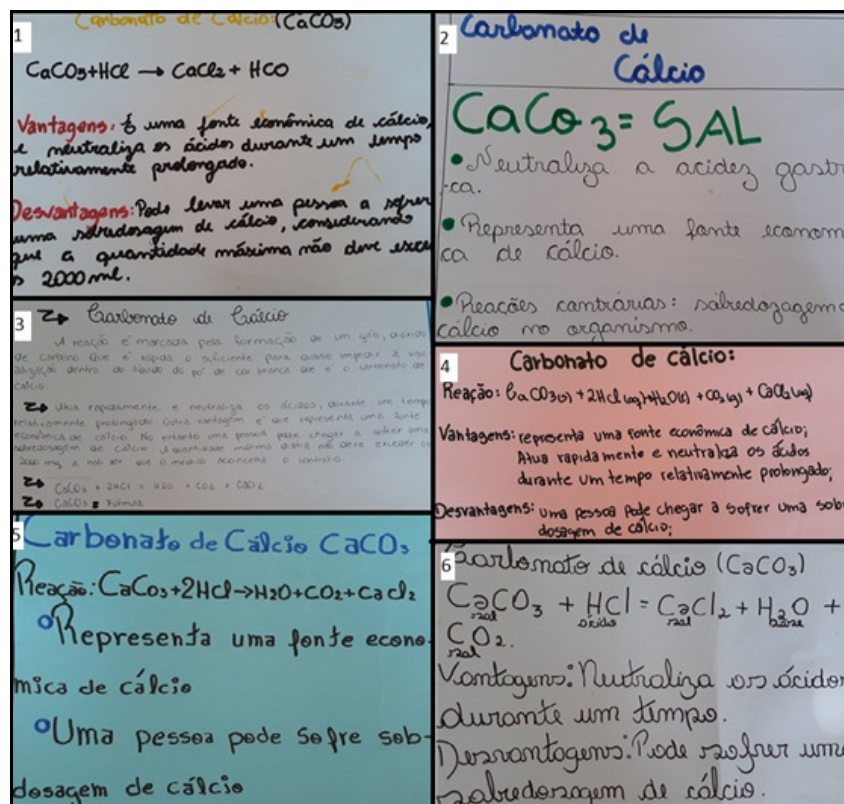 1
Carbonato de Cálcio: (CaCO3)
CaCO3+HCl → CaCl2 + HCO
Vantagens: É uma fonte econômica de cálcio,
e neutraliza os ácidos durante um tempo
relativamente prolongado.
Desvantagens: Pode levar uma pessoa a sofrer
uma sobredosagem de cálcio, considerando
que a quantidade máxima não deve exce
2000 ml.
2
Carbonato de
Cálcio
CaCo3 = SAL
• Neutraliza a acidez gastr
ca.
• Representa uma fonte econom
ca de cálcio.
• Reações contrárias: sobredozagem
cálcio no organismo.
3
Carbonato de Cálcio
A reação é marcada pela formação de um gás, dióxido
de carbono que é rápida o suficiente para quase impedir a
dentro do líquido do pó de cor branca que é o carbonato de
cálcio.
Atua rapidamente e neutraliza os ácidos, durante um tempo
relativamente prolongado. Outra vantagem é que representa uma fonte
econômica de cálcio. No entanto uma pessoa pode chegar a sofrer uma
sobredosagem de cálcio. A quantidade máxima diária não deve exceder os
2000 mg, a não ser que o médico aconselha o contrário.
CaCO3 + 2HCl = H2O + CO2 + CaCl2
CaCO3 = Fórmula
4
Carbonato de cálcio:
Reação: CaCO3(s) + 2HCl(aq) → H2O(l) + CO2(g) + CaCl2(aq)
Vantagens: representa uma fonte econômica de cálcio;
Atua rapidamente e neutraliza os ácidos
durante um tempo relativamente prolongado;
Desvantagens: uma pessoa pode chegar a sofrer uma sob
dosagem de cálcio;
5
Carbonato de Cálcio CaCO3
Reação: CaCo3+2HCl→H2O+CO2+CaCl2
Representa uma fonte econo-
mica de cálcio
Uma pessoa pode sofre sob-
dosagem de cálcio
6
Carbonato de cálcio (CaCO3)
CaCO3 + HCl = CaCl2 + H2O +
sal ácido sal base
CO2.
sal
Vantagens: Neutraliza os ácidos
durante um tempo.
Desvantagens: Pode sofrer uma
sobredosagem de cálcio.